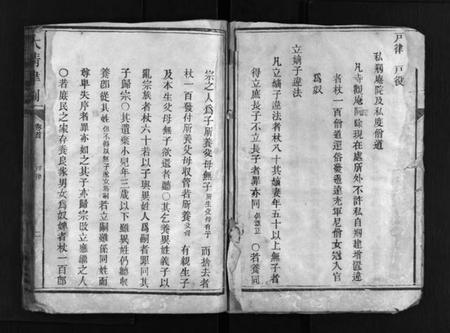 戶律 戶役
私刱庵院及私度僧道
凡寺觀庵院除現在處所外不許私自刱建增置違
者杖一百僧道還俗發邊遠充軍尼僧女冠入官
為奴
立嫡子違法
凡立嫡子違法者杖八十其嫡妻年五十以上無子者
得立庶長子不立長子者罪亦同 〇若養同
宗之人爲子所養父母無子所生父母有子而捨去者
杖一百發付所養父母收管若所養父母有親生子
及本生父母無子欲還者聽〇其乞養異姓義子以
亂宗族者杖六十若以子與異姓人爲嗣者罪同其
子歸宗〇其遺棄小兒年三歲以下雖異姓仍聽收
養卽從其姓但不得以無子遂立爲嗣若立嗣雖係同姓而
尊卑失序者罪亦如之其子亦歸宗改立應繼之人
〇若庶民之家存養良家男女爲奴婢者杖一百卽
大清律例
戶律